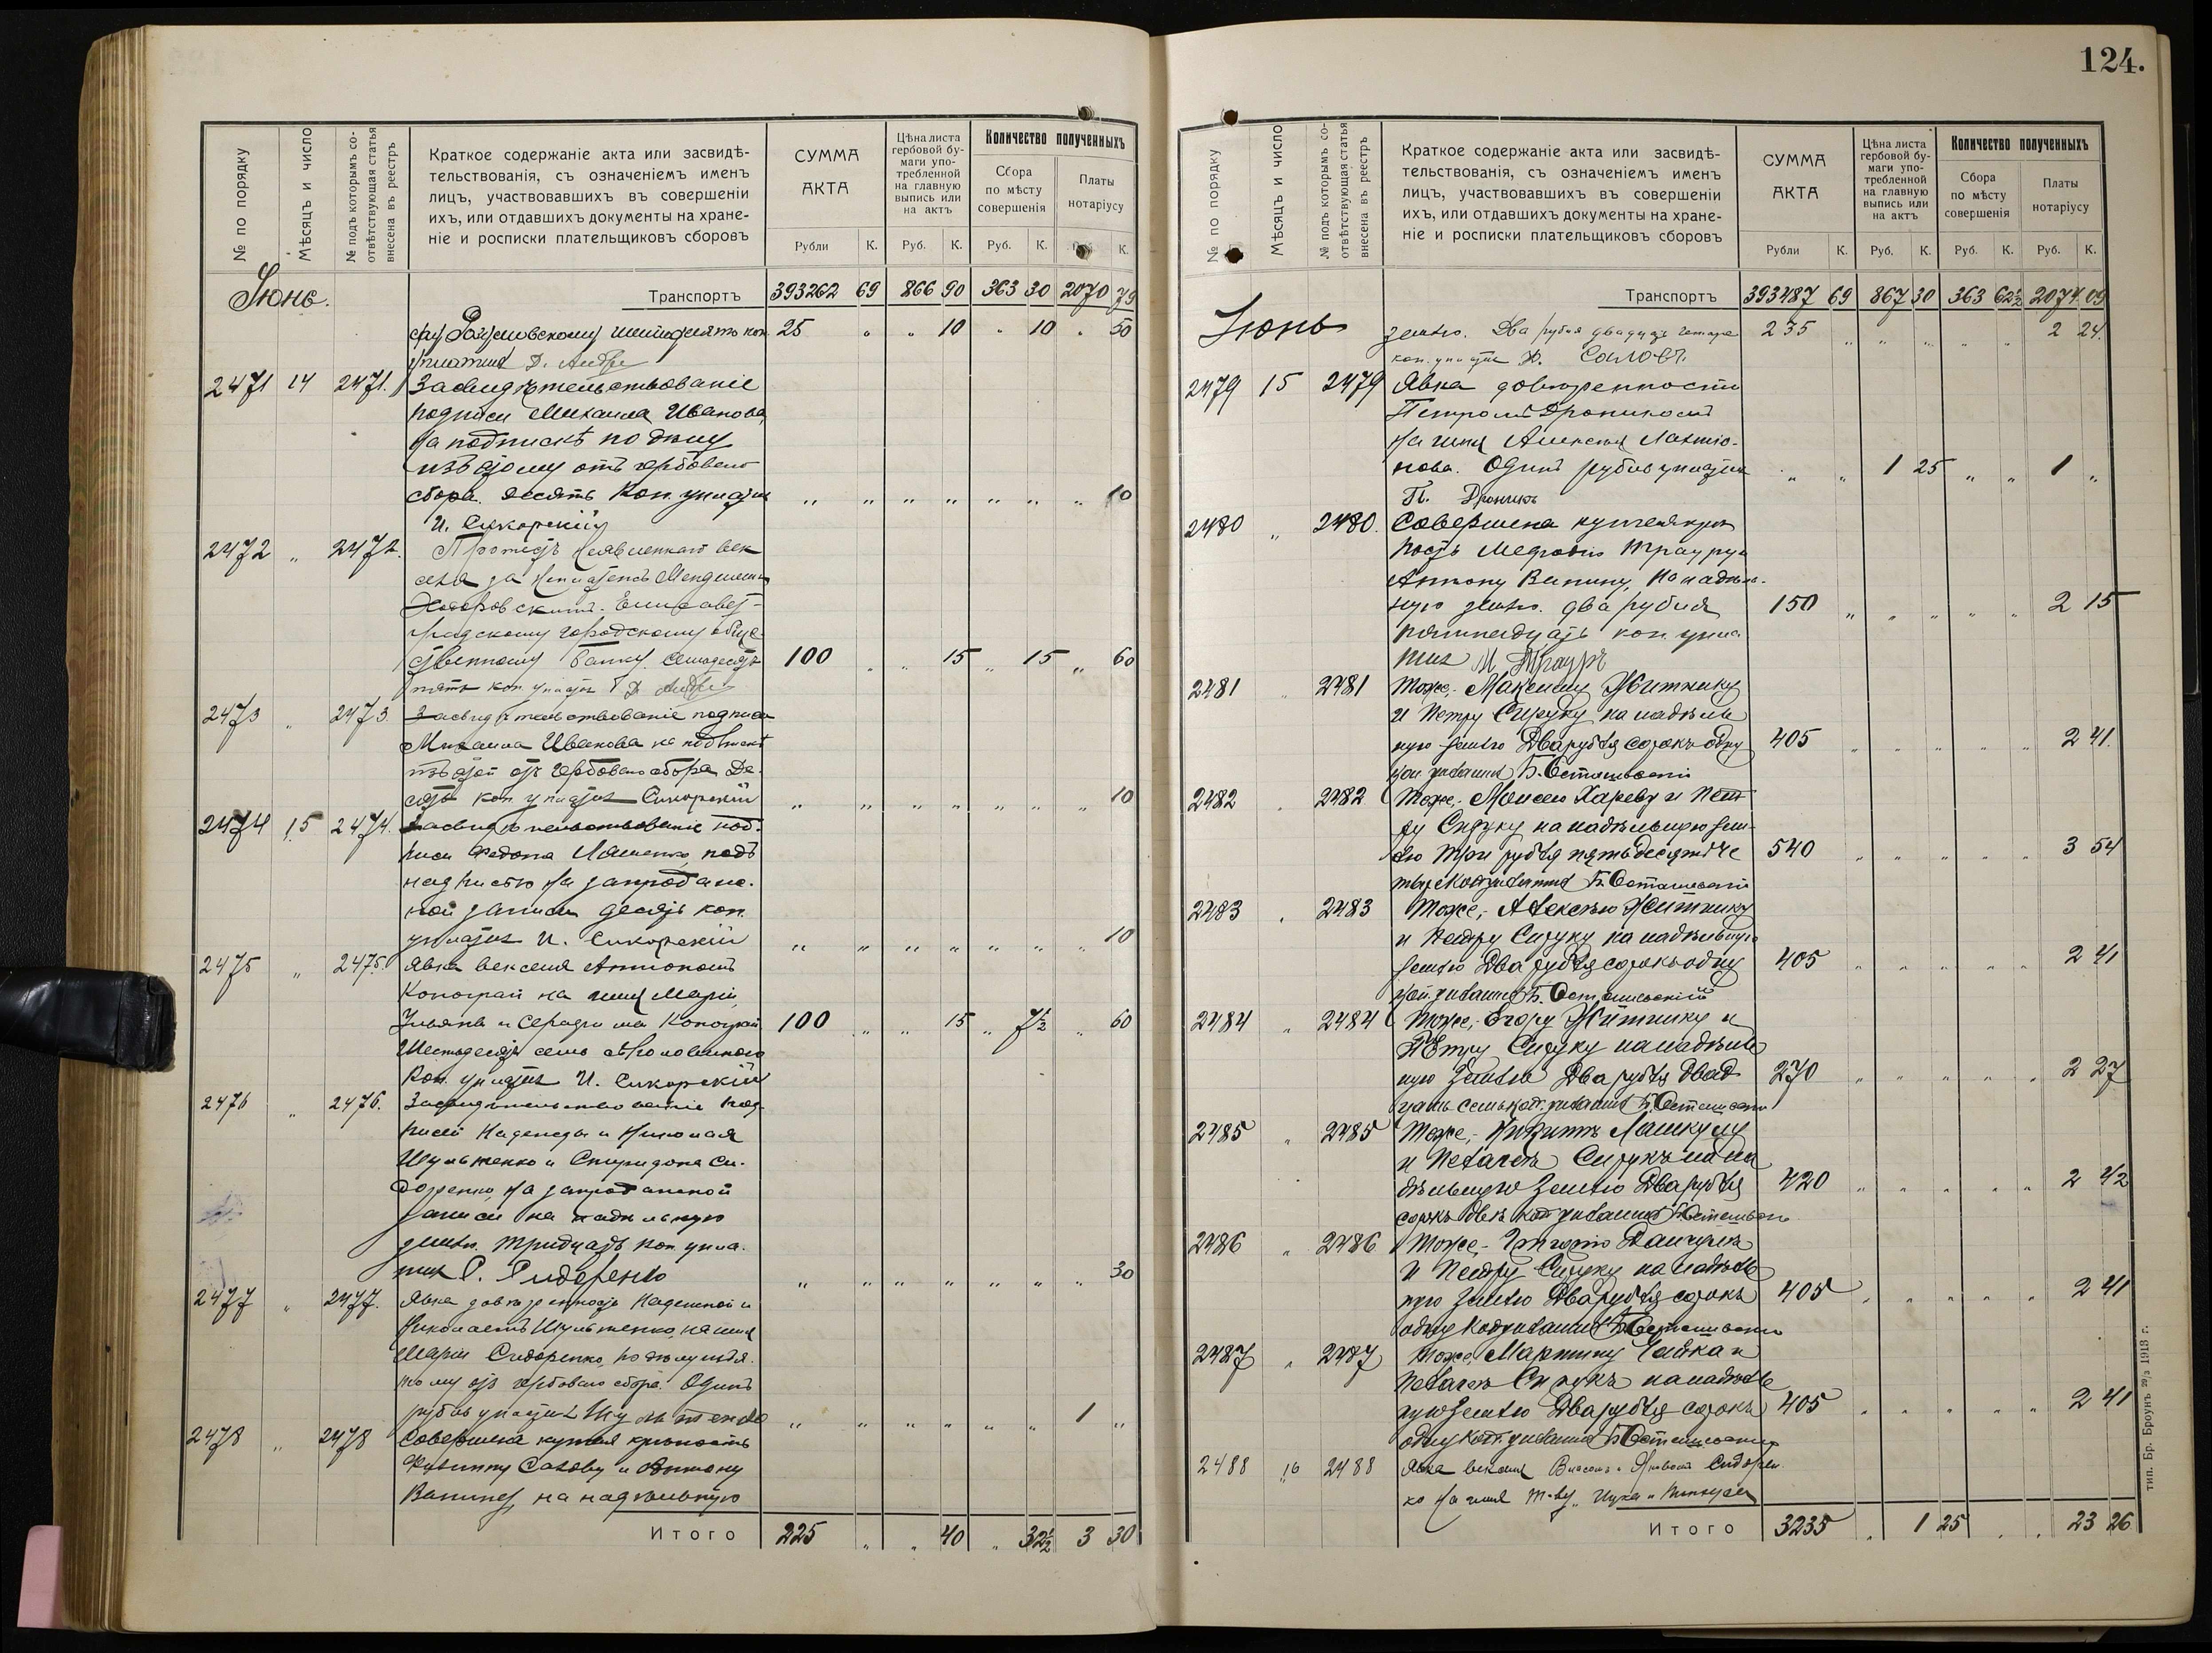 124.
№ по порядку
Мѣсяцъ и число
№ подъ которымъ соотвѣтствующая статья внесена въ реестръ
Краткое содержаніе акта или засвидѣ-
тельствованія, съ означеніемъ именъ
лицъ, участвовавшихъ въ совершеніи
ихъ, или отдавшихъ документы на хране-
ніе и росписки плательщиковъ сборовъ
СУММА АКТА
Рубли К.
Цѣна листа гербовой бумаги употребленной на главную выпись или на актъ
Руб. К.
Количество полученныхъ
Сбора по мѣсту совершенія
Руб. К.
Платы нотаріусу
К.
Іюнь.
Транспортъ 393262 69 866 90 363 30 2070 79
шестьдесятъ коп 25 „ „ 10 „ 10 „ 50
2471 14 2471. Засвидѣтельствованіе
подписи Михаила Иванова,
на подпискѣ по дѣлу
изъятому отъ гербоваго
сбора. Десять коп. уплатилъ „ „ „ „ „ „ „ 10
И. Сикорскій
2472 „ 2472. Протестъ век
селя за неплатежъ
Елисавет-
градскому городскому обще-
ственному банку. Семьдесятъ 100 „ „ 15 „ 15 „ 60
пять коп уплатилъ
2473 „ 2473. Засвидѣтельствованіе подписи
Михаила Иванова на подпискѣ
изъятой отъ гербоваго сбора Де-
сять коп уплатилъ Сикорскій „ „ „ „ „ „ „ 10
2474 15 2474. Засвидѣтельствованіе под-
писи Федота Ляшенко, подъ
надписью на запродаж-
ной записи десять коп.
уплатилъ И. Сикорскій „ „ „ „ „ „ „ 10
2475 „ 2475. Явка векселя Антономъ
Коноград на имя Маріи,
Ульяны и Серафима 100 „ „ 15 „ 7½ „ 60
Шестьдесятъ семь съ половиною
коп. уплатилъ И. Сикорскій
2476 „ 2476. Засвидѣтельствованіе под-
писей Надежды и Николая
Шульженко и Спиридона Си-
доренко, на запродажной
записи на надѣльную
землю. Тридцать коп упла-
тилъ С. Сидоренко „ „ „ „ „ „ „ 30
2477 „ 2477. Явка довѣренности Надеждой и
Николаемъ Шульженко, на имя
Маріи Сидоренко, по дѣлу изъя-
тому отъ гербоваго сбора. Одинъ
рубль уплатилъ Шульженко „ „ „ „ „ „ 1 „
2478 „ 2478 Совершена купчая крѣпость
Филиппу Салову и Антону
Ванину, на надѣльную
Итого 225 „ „ 40 „ 32½ 3 30
№ по порядку
Мѣсяцъ и число
№ подъ которымъ соотвѣтствующая статья внесена въ реестръ
Краткое содержаніе акта или засвидѣ-
тельствованія, съ означеніемъ именъ
лицъ, участвовавшихъ въ совершеніи
ихъ, или отдавшихъ документы на хране-
ніе и росписки плательщиковъ сборовъ
СУММА АКТА
Рубли К.
Цѣна листа гербовой бумаги употребленной на главную выпись или на актъ
Руб. К.
Количество полученныхъ
Сбора по мѣсту совершенія
Руб. К.
Платы нотаріусу
Руб. К.
Транспортъ 393487 69 867 30 363 62½ 2074 09
Іюнь землю. Два рубля двадцать четыре 235 „ „ „ „ „ 2 24.
коп. уплатилъ Ф. Саловъ.
2479 15 2479 Явка довѣренности
Петромъ Дроникомъ
на имя Алексея
нова. Одинъ рубль уплатилъ „ „ 1 25 „ „ 1 „
П. Дроникъ
2480 „ 2480. Совершена купчая крѣ
пость Мефодію Трауру и
Антону Ванину, на надѣль-
ную землю. два рубля 150 „ „ „ „ „ 2 15
пятнадцать коп упла
тилъ М. Трауръ
2481 „ 2481 Тоже, Максиму Житнику
и Петру Сируку на надѣль
ную землю Два рубля сорокъ одну 405 „ „ „ „ „ 2 41.
коп уплатилъ Б. Осташевскій
2482 „ 2482 Тоже, Моисею Хареву и Пет-
ру Сируку на надѣльную зем-
лю три рубля пятьдесятъ че 540 „ „ „ „ „ 3 54
тыре коп уплатилъ Б. Осташевскій
2483 „ 2483 Тоже, Алексѣю Житнику
и Петру Сируку на надѣльную
землю Два рубля сорокъ одну 405 „ „ „ „ „ 2 41
коп. уплатилъ Б. Осташевскій
2484 „ 2484 Тоже, Егору Житнику и
Петру Сируку на надѣль
ную землю Два рубля двад 270 „ „ „ „ „ 2 27
цать семь коп. уплатилъ Б. Осташевскій
2485 „ 2485 Тоже,
и Пелагеѣ Сирукъ на на
дѣльную землю Два рубля 420 „ „ „ „ „ 2 42
сорокъ двѣ коп уплатилъ Б. Осташевскій
2486 „ 2486 Тоже, Григорію
и Петру Сируку на надѣль
ную землю Два рубля сорокъ 405 „ „ „ „ „ 2 41
одну коп уплатилъ Б. Осташевскій
2487 „ 2487 Тоже Мартину Чайка и
Пелагеѣ Сирукъ на надѣль
ную землю Два рубля сорокъ 405 „ „ „ „ „ 2 41
одну коп. уплатилъ Б. Осташевскій
2488 16 2488 Явка векселя Власомъ и Яковомъ Сидорен-
ко на имя Т-ву
Итого 3235 „ 1 25 „ „ 23 26
тип. Бр. Броунъ 29/3 1913 г.